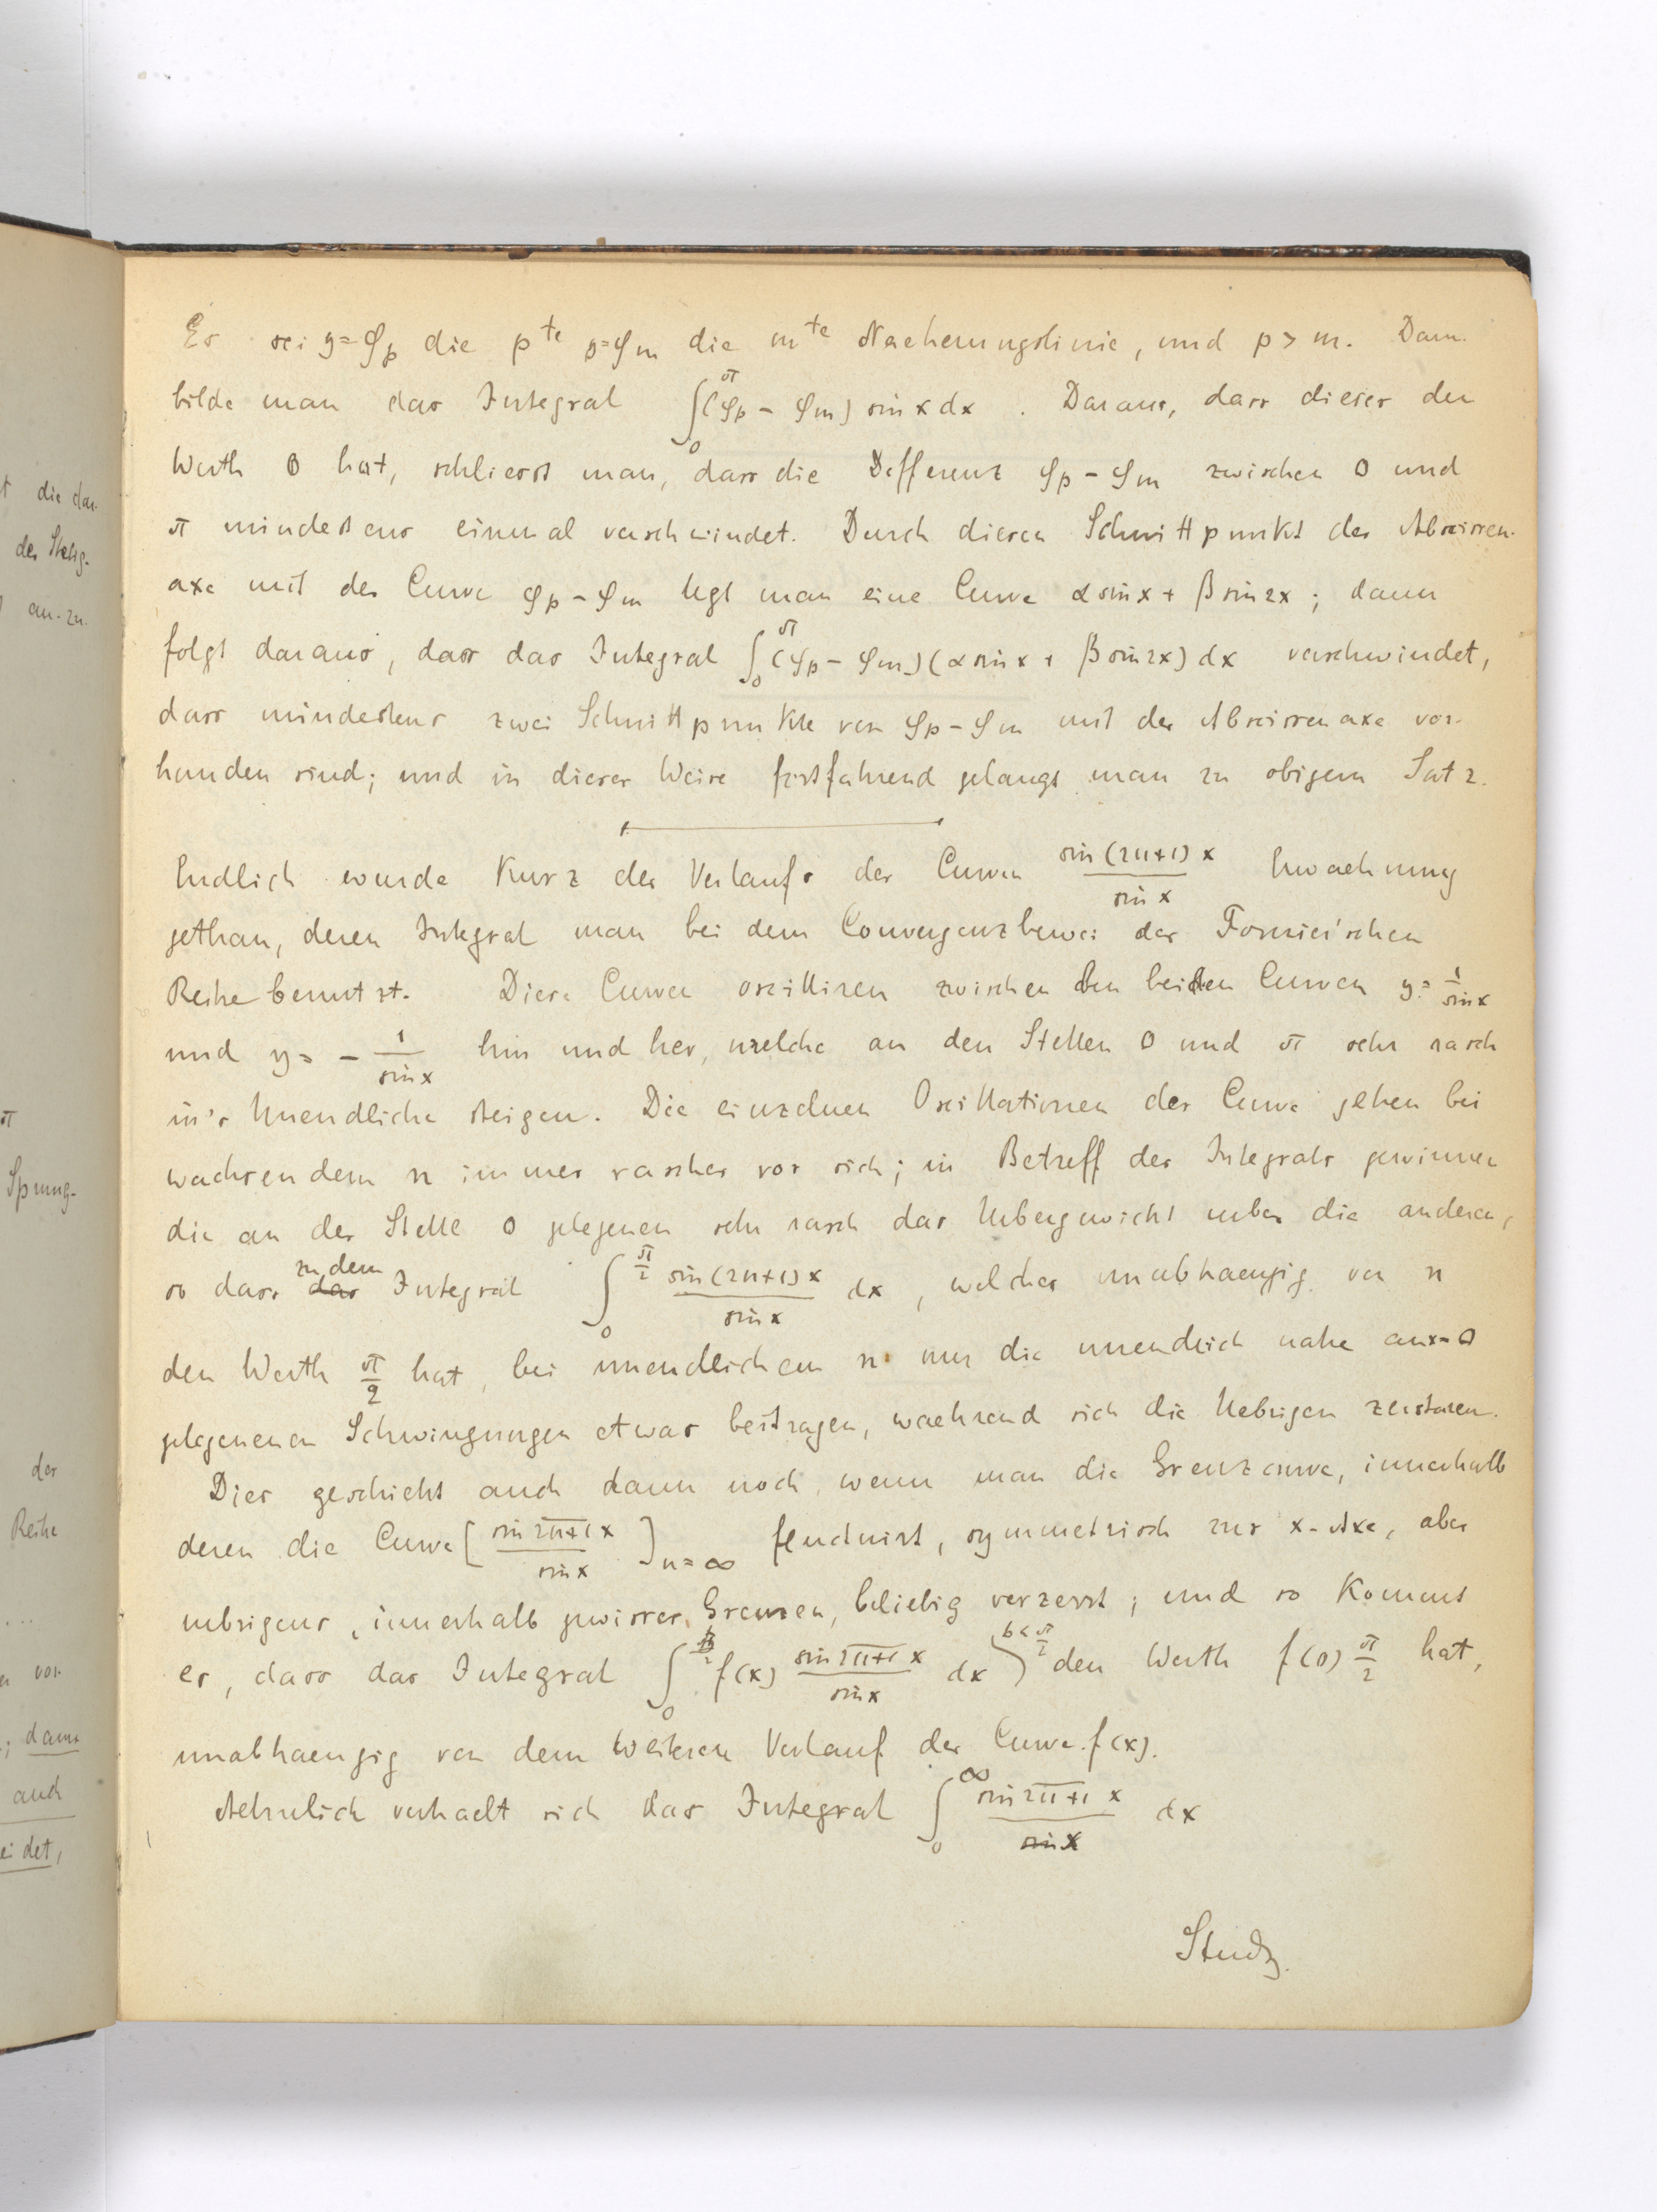 t die dar-
der Stetig-
t an-zu-
π
Sprung-
der
Reihe
...
n vor-
; dann
auch
eidet,
Es sei y=φ_p die p^te y=φ_m die m^te Naeherungslinie, und p > m. Dann
bilde man das Integral ∫_0^π (φ_p − φ_m) sin x dx . Daraus, dass dieses den
Werth 0 hat, schliesst man, dass die Differenz φ_p − φ_m zwischen 0 und
π mindestens einmal verschwindet. Durch diesen Schnittpunkt der Abscissen-
axe mit der Curve φ_p − φ_m legt man eine Curve α sin x + β sin 2x ; dann
folgt daraus, dass das Integral ∫_0^π (φ_p − φ_m)(α sin x + β sin 2x) dx verschwindet,
dass mindestens zwei Schnittpunkte von φ_p − φ_m mit der Abscissenaxe vor-
handen sind; und in dieser Weise fortfahrend gelangt man zu obigem Satz.
Endlich wurde kurz des Verlaufs der Curven sin (2n+1) x / sin x Erwaehnung
gethan, deren Integral man bei dem Convergenzbeweis der Fourier'schen
Reihe benutzt. Diese Curven oscilliren zwischen den beiden Curven y = 1/sin x
und y = − 1/sin x hin und her, welche an den Stellen 0 und π sehr rasch
in's Unendliche steigen. Die einzelnen Oscillationen der Curve gehen bei
wachsendem n immer rascher vor sich; in Betreff des Integrals gewinnen
die an der Stelle 0 gelegenen sehr rasch das Uebergewicht ueber die anderen,
so dass ~~das~~ zu dem Integral ∫_0^{π/2} sin (2n+1) x / sin x dx , welches unabhaengig von n
den Werth π/2 hat, bei unendlichem n nur die unendlich nahe an x=0
gelegenenen Schwingungen etwas beitragen, waehrend sich die Uebrigen zerstoren.
Dies geschieht auch dann noch, wenn man die Grenzcurve, innerhalb
deren die Curve [ sin \overline{2n+1} x / sin x ]_{n=∞} fluctuirt, symmetrisch zur x-Axe, aber
uebrigens, innerhalb gewisser Grenzen, beliebig verzerrt ; und so kommt
es, dass das Integral ∫_0 f(x) sin \overline{2n+1} x / sin x dx b<π/2 den Werth f(0) π/2 hat,
unabhaengig von dem weiteren Verlauf der Curve f(x).
Aehnlich verhaelt sich das Integral ∫_0^∞ sin \overline{2n+1} x / ~~sin~~ x dx
Study.